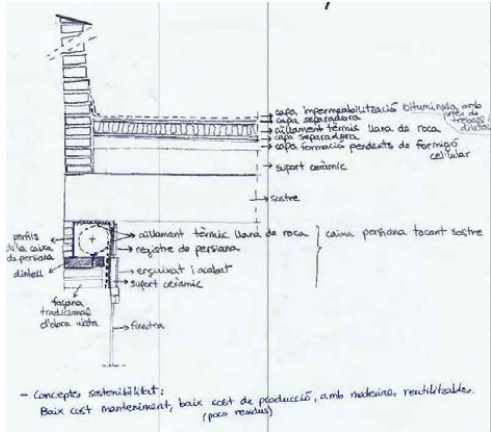 capa impermeabilització bituminosa, amb
juntes de
treball i
dilatació
capa separadora
aïllament tèrmic llana de roca
capa separadora
capa formació pendents de formigó
cel·lular
suport ceràmic
sostre
perfils
de la caixa
de persiana
dintell
façana
tradicional
d'obra vista
aïllament tèrmic llana de roca
registre de persiana
caixa persiana tocant sostre
enguixat i acabat
suport ceràmic
finestra
- Conceptes sostenibilitat:
Baix cost manteniment, baix cost de producció, amb materials reutilitzables.
(pocs residus)